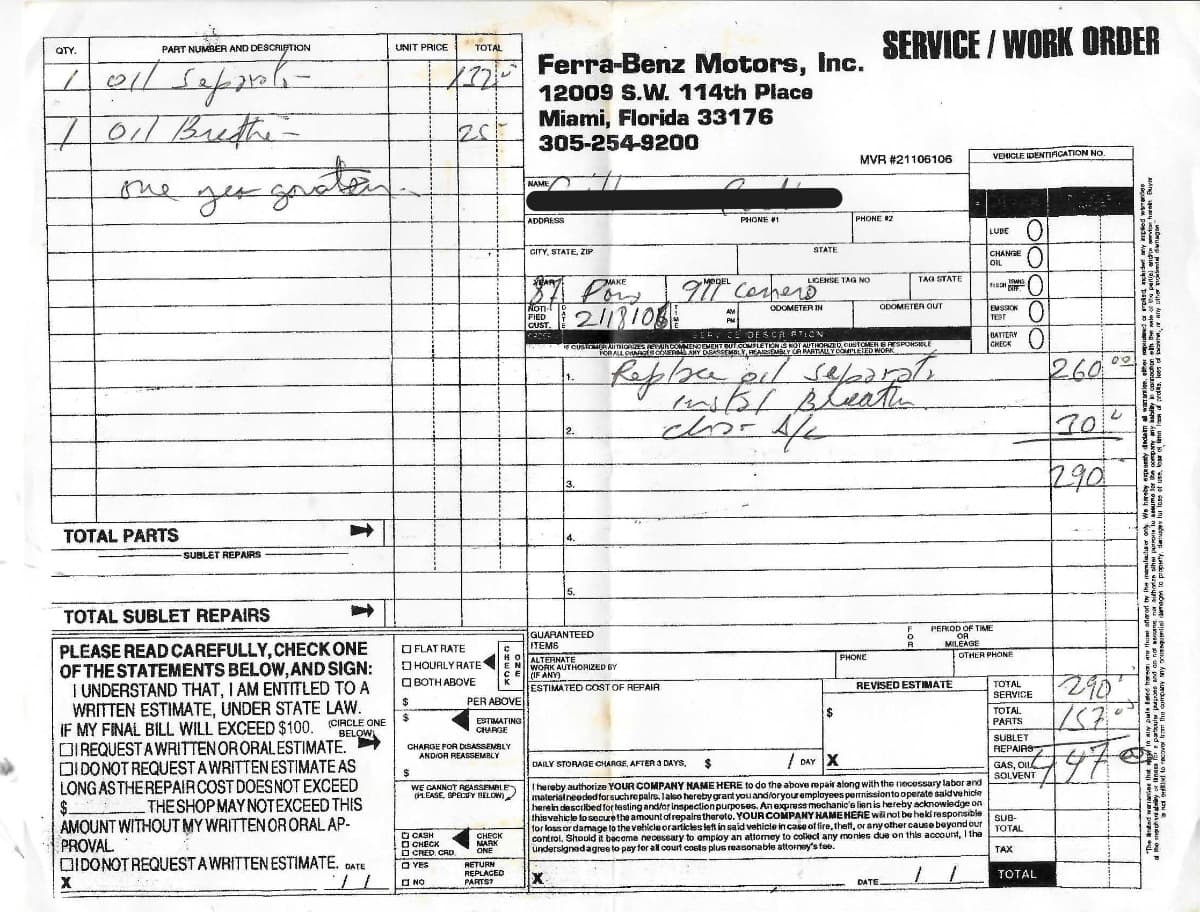 SERVICE / WORK ORDER
Ferra-Benz Motors, Inc.
12009 S.W. 114th Place
Miami, Florida 33176
305-254-9200
MVR #21106106
QTY. PART NUMBER AND DESCRIPTION UNIT PRICE TOTAL
1 oil Separat 132
1 oil Brethe 25
one
TOTAL PARTS
SUBLET REPAIRS
TOTAL SUBLET REPAIRS
VEHICLE IDENTIFICATION NO.
NAME
ADDRESS PHONE #1 PHONE #2
CITY, STATE, ZIP STATE
YEAR MAKE MODEL LICENSE TAG NO TAG STATE
87 911
NOTIFIED CUST. DATE TIME AM PM ODOMETER IN ODOMETER OUT
LUBE
CHANGE OIL
EMISSION TEST
BATTERY CHECK
SERVICE DESCRIPTION
IF CUSTOMER AUTHORIZES REPAIR COMMENCEMENT BUT COMPLETION IS NOT AUTHORIZED, CUSTOMER IS RESPONSIBLE
FOR ALL CHARGES COVERING ANY DISASSEMBLY, REASSEMBLY OR PARTIALLY COMPLETED WORK.
1. Replace oil separat 260 00
Breath
2. A/c 30
3. 290
4.
5.
PLEASE READ CAREFULLY, CHECK ONE
OF THE STATEMENTS BELOW, AND SIGN:
I UNDERSTAND THAT, I AM ENTITLED TO A
WRITTEN ESTIMATE, UNDER STATE LAW.
IF MY FINAL BILL WILL EXCEED $100. (CIRCLE ONE BELOW)
I REQUEST A WRITTEN OR ORAL ESTIMATE.
I DO NOT REQUEST A WRITTEN ESTIMATE AS
LONG AS THE REPAIR COST DOES NOT EXCEED
$ THE SHOP MAY NOT EXCEED THIS
AMOUNT WITHOUT MY WRITTEN OR ORAL AP-
PROVAL
I DO NOT REQUEST A WRITTEN ESTIMATE. DATE
X / /
FLAT RATE
HOURLY RATE
BOTH ABOVE
CHECK ONE
$ PER ABOVE
$ ESTIMATING CHARGE
CHARGE FOR DISASSEMBLY
AND/OR REASSEMBLY
$
WE CANNOT REASSEMBLE
(PLEASE, SPECIFY BELOW)
CASH CHECK
CHECK MARK
CRED. CRD. ONE
YES RETURN
REPLACED
NO PARTS?
GUARANTEED
ITEMS
FOR PERIOD OF TIME
OR
MILEAGE
ALTERNATE
WORK AUTHORIZED BY
(IF ANY)
PHONE OTHER PHONE
ESTIMATED COST OF REPAIR REVISED ESTIMATE
$
DAILY STORAGE CHARGE, AFTER 3 DAYS, $ / DAY X
I hereby authorize YOUR COMPANY NAME HERE to do the above repair along with the necessary labor and
material needed for such repairs. I also hereby grant you and/or your employees permission to operate said vehicle
herein described for testing and/or inspection purposes. An express mechanic's lien is hereby acknowledge on
this vehicle to secure the amount of repairs thereto. YOUR COMPANY NAME HERE will not be held responsible
for loss or damage to the vehicle or articles left in said vehicle in case of fire, theft, or any other cause beyond our
control. Should it become necessary to employ an attorney to collect any monies due on this account, I the
undersigned agree to pay for all court costs plus reasonable attorney's fee.
X DATE / /
TOTAL SERVICE 290
TOTAL PARTS 157
SUBLET REPAIRS
GAS, OIL, SOLVENT 447
SUB-TOTAL
TAX
TOTAL